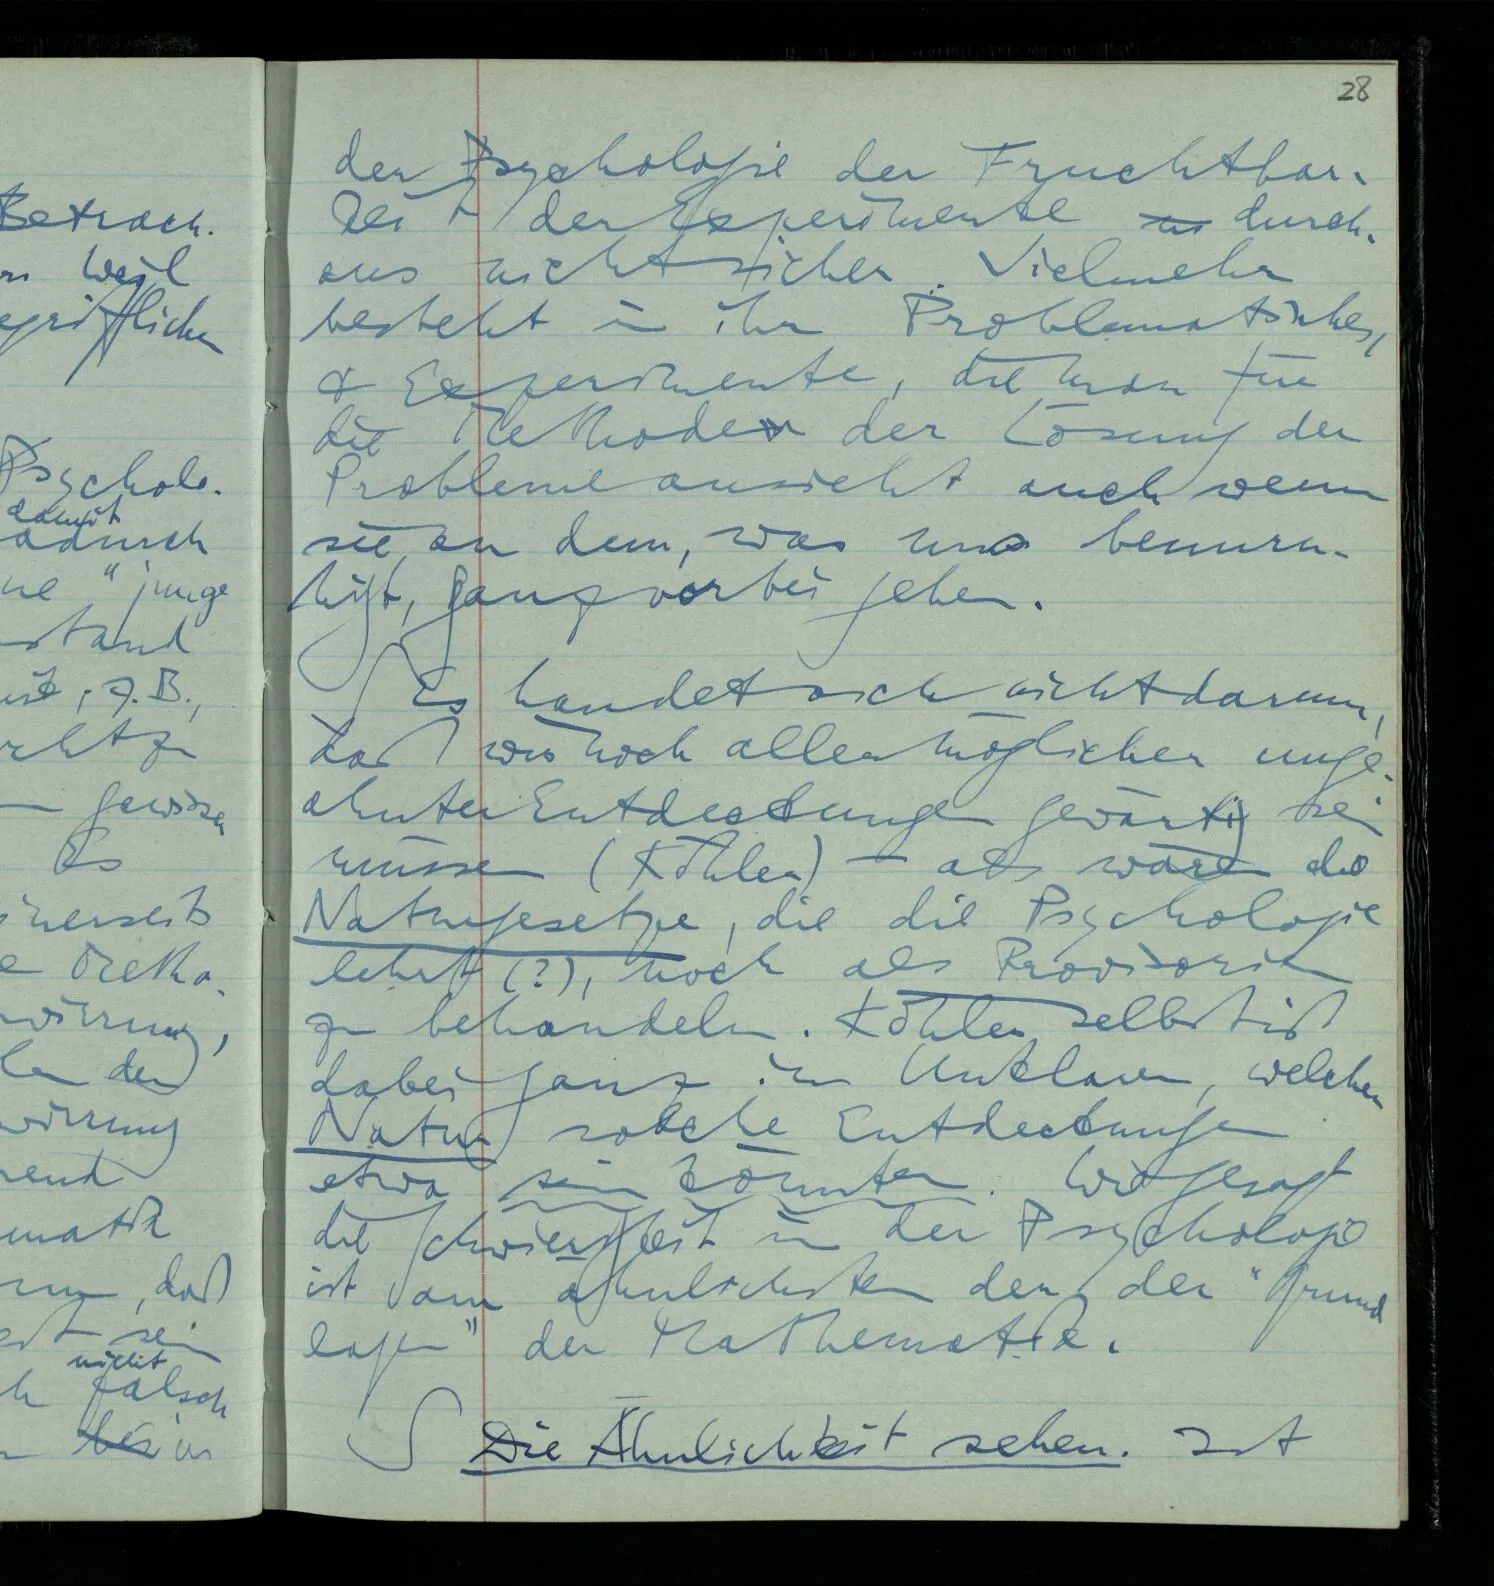 Betrach.
weil
egrifflichen
Psycholo.
damit
dadurch
ne "junge
stand
ist; z.B.,
recht zu
gewisse
Es
einerseits
e Metho.
wirrung,
der
wirrung
rend
matik
, daß
sein
nicht
falsch
bis in
28
der Psychologie der Fruchtbar-
keit der Experimente durch-
aus nicht sicher. Vielmehr
besteht in ihr Problematisches,
& Experimente, die man für
die Methoden der Lösung der
Probleme ansieht auch wenn
sie an dem, was uns beunru-
higt, ganz vorbei gehen.
∫ Es handelt sich nicht darum,
daß wir noch aller möglicher unge-
ahnter Entdeckungen gewärtig sein
müssen (Köhler) – als wären die
Naturgesetze, die die Psychologie
lehrt (?), noch als Provisorien
zu behandeln. Köhler selbst ist
dabei ganz im Unklaren, welcher
Natur solche Entdeckungen
etwa sein könnten. Wie gesagt
die Schwierigkeit in der Psychologie
ist am ähnlichsten der, der "Grund
lagen" der Mathematik.
∫ Die Ähnlichkeit sehen. Ist